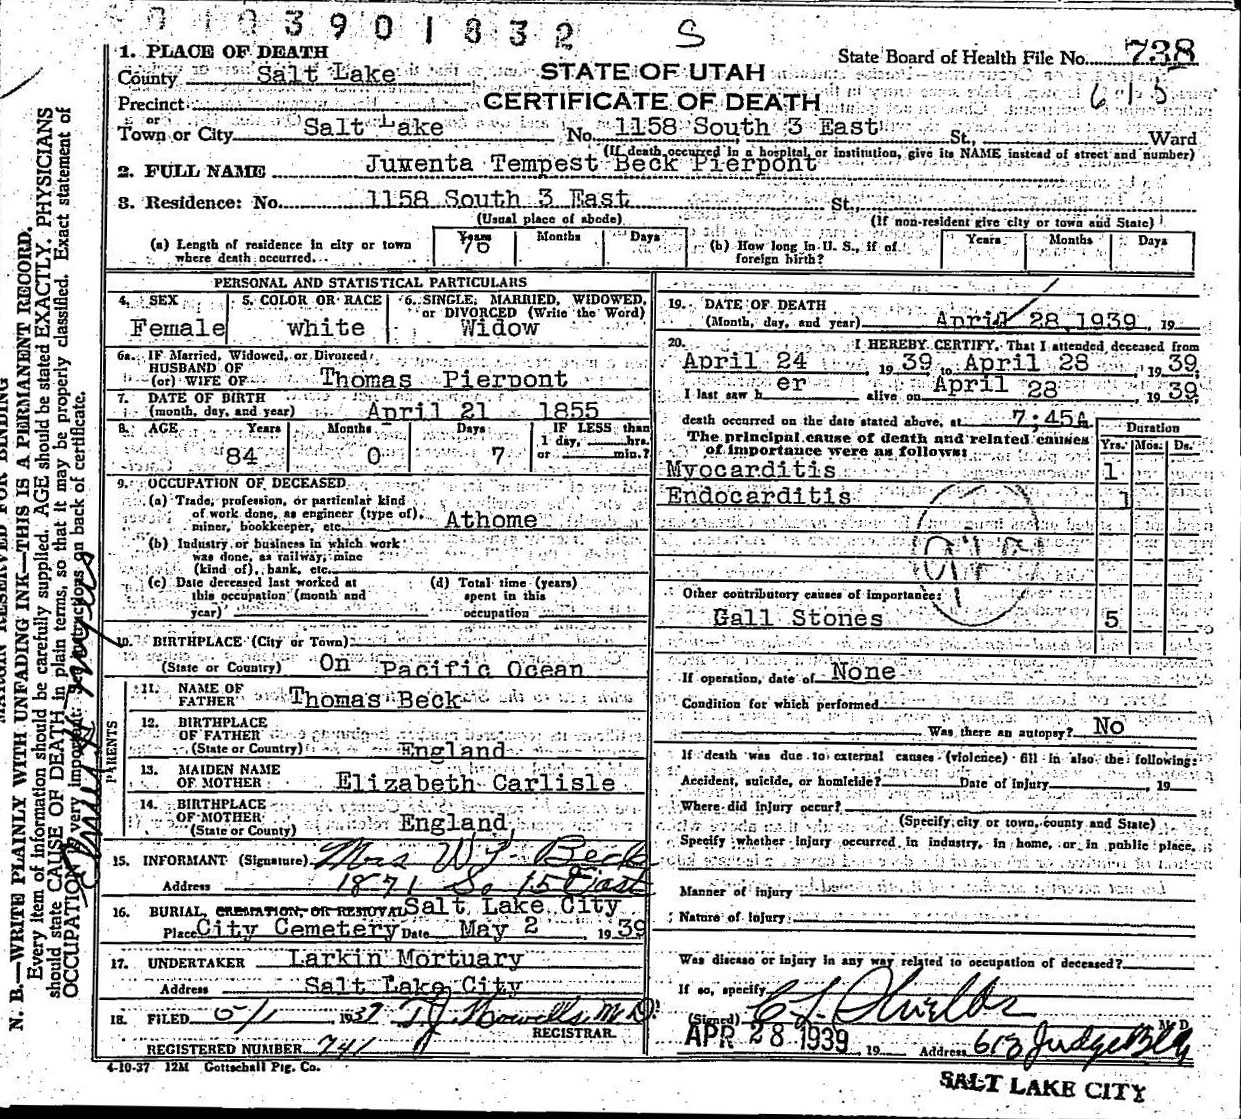 0 1 0 3 9 0 1 8 3 2 S
1. PLACE OF DEATH
State Board of Health File No. 738
County Salt Lake
STATE OF UTAH
615
Precinct
CERTIFICATE OF DEATH
or
Town or City Salt Lake No. 1158 South 3 East St, Ward
(If death occurred in a hospital or institution, give its NAME instead of street and number)
2. FULL NAME Juwenta Tempest Beck Pierpont
3. Residence: No. 1158 South 3 East St,
(Usual place of abode) (If non-resident give city or town and State)
(a) Length of residence in city or town where death occurred... Years 76 Months Days
(b) How long in U. S., if of foreign birth? Years Months Days
PERSONAL AND STATISTICAL PARTICULARS
4. SEX Female
5. COLOR OR RACE white
6. SINGLE, MARRIED, WIDOWED, or DIVORCED (Write the Word) Widow
6a. IF Married, Widowed, or Divorced
HUSBAND OF
(or) WIFE OF Thomas Pierpont
7. DATE OF BIRTH
(month, day, and year) April 21 1855
8. AGE Years 84 Months 0 Days 7 IF LESS than 1 day, hrs. or min.?
9. OCCUPATION OF DECEASED
(a) Trade, profession, or particular kind of work done, as engineer (type of), miner, bookkeeper, etc. Athome
(b) Industry or business in which work was done, as railway, mine (kind of), bank, etc.
(c) Date deceased last worked at this occupation (month and year)
(d) Total time (years) spent in this occupation
10. BIRTHPLACE (City or Town)
(State or Country) On Pacific Ocean
PARENTS
11. NAME OF FATHER Thomas Beck
12. BIRTHPLACE OF FATHER
(State or Country) England
13. MAIDEN NAME OF MOTHER Elizabeth Carlisle
14. BIRTHPLACE OF MOTHER
(State or County) England
15. INFORMANT (Signature) Mrs W J Beck
Address 1871 So 15 East
16. BURIAL, CREMATION, OR REMOVAL Salt Lake City
Place City Cemetery Date May 2, 1939
17. UNDERTAKER Larkin Mortuary
Address Salt Lake City
18. FILED 5/1 1939 T J Howells, M.D.
REGISTRAR.
REGISTERED NUMBER 741
4-10-37 12M Gottschall Ptg. Co.
19. DATE OF DEATH
(Month, day, and year) April 28, 1939, 19
20. I HEREBY CERTIFY, That I attended deceased from
April 24, 1939 to April 28, 1939.
I last saw h er alive on April 28, 1939
death occurred on the date stated above, at 7:45A.
The principal cause of death and related causes of importance were as follows: Duration
Yrs. Mos. Ds.
Myocarditis 1
Endocarditis 1
Other contributory causes of importance:
Gall Stones 5
If operation, date of None
Condition for which performed
Was there an autopsy? No
If death was due to external causes (violence) fill in also the following:
Accident, suicide, or homicide? Date of injury, 19
Where did injury occur?
(Specify city or town, county and State)
Specify whether injury occurred in industry, in home, or in public place.
Manner of injury
Nature of injury
Was disease or injury in any way related to occupation of deceased?
If so, specify
(Signed) C L Shields M. D.
APR 28 1939, 19 Address 613 Judge Bldg
SALT LAKE CITY
MARGIN RESERVED FOR BINDING
N. B.—WRITE PLAINLY WITH UNFADING INK—THIS IS A PERMANENT RECORD.
Every item of information should be carefully supplied. AGE should be stated EXACTLY. PHYSICIANS
should state CAUSE OF DEATH in plain terms, so that it may be properly classified. Exact statement of
OCCUPATION is very important. Instructions on back of certificate.